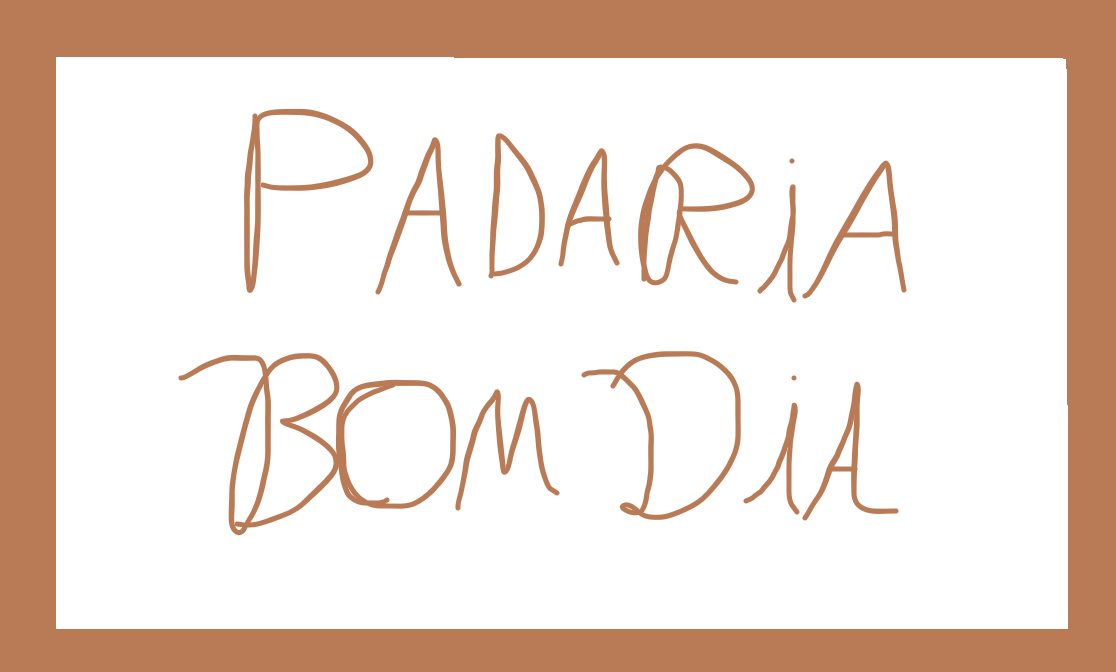 PADARiA
BOM DiA